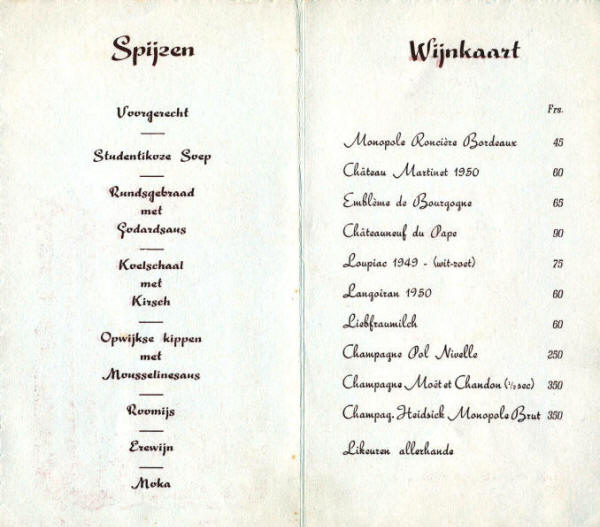 Spijzen
Voorgerecht
Studentikoze Soep
Rundsgebraad
met
Godardsaus
Koelschaal
met
Kirsch
Opwijkse kippen
met
Mousselinesaus
Roomijs
Erewijn
Moka
Wijnkaart
Frs.
Monopole Roncière Bordeaux 45
Château Martinet 1950 60
Emblème de Bourgogne 65
Châteauneuf du Pape 90
Loupiac 1949 - (wit-zoet) 75
Langoiran 1950 60
Liebfraumilch 60
Champagne Pol Nivelle 250
Champagne Moët et Chandon (½ sec) 350
Champag. Heidsick Monopole Brut 350
Likeuren allerhande